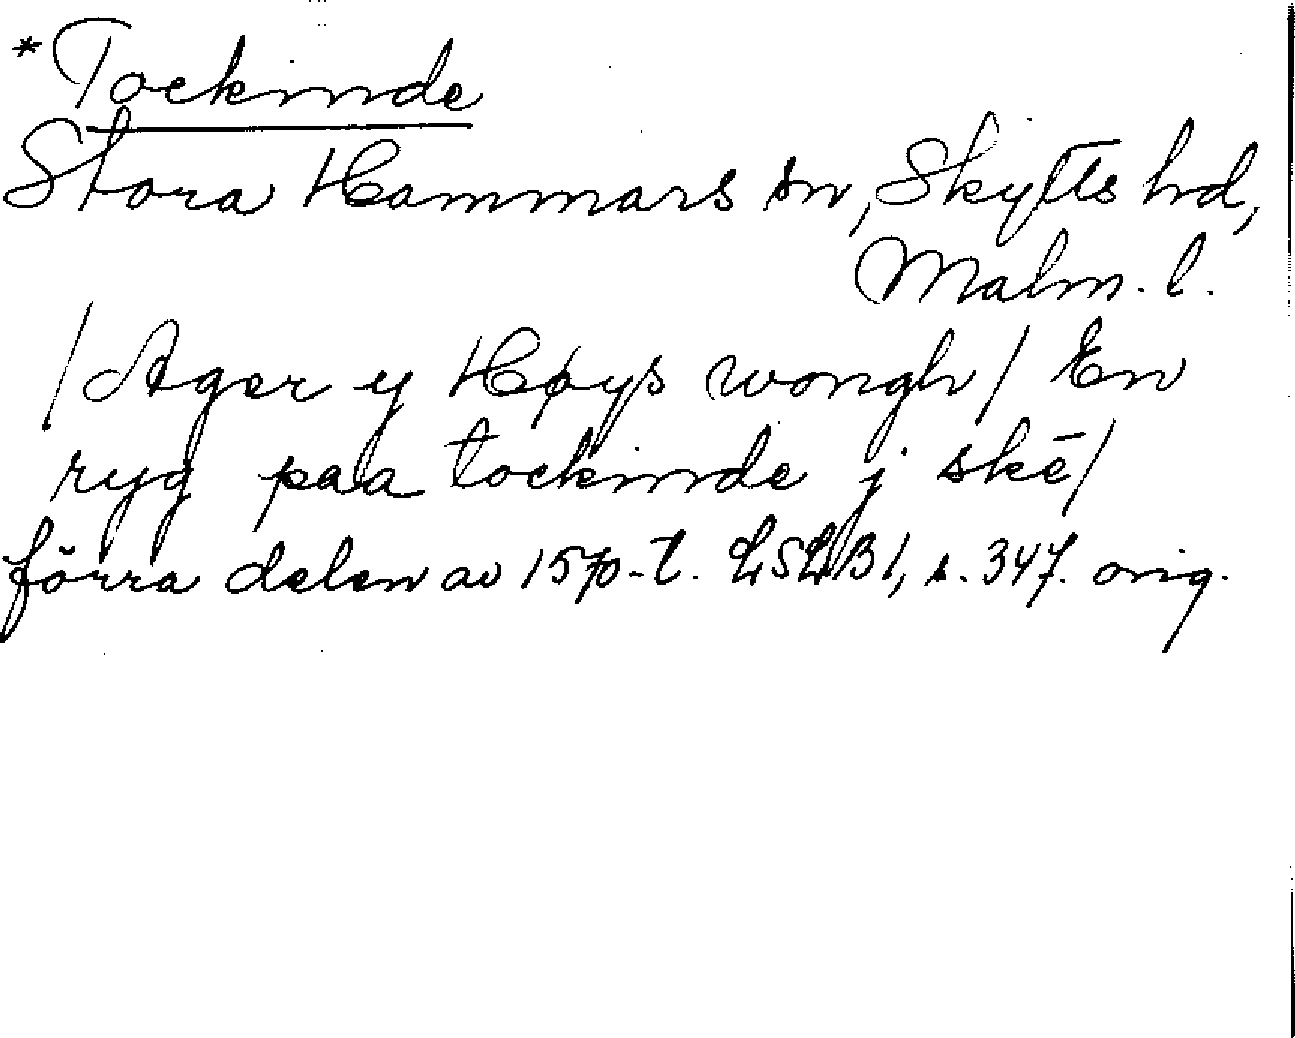 *Tockinde
Stora Hammars sn, Skytts hd,
Malm. l.
/Ager y Høys wongh/ En
ryg paa tockinde j skē/
förra delen av 1570-t. LSLB1, s. 347. orig.